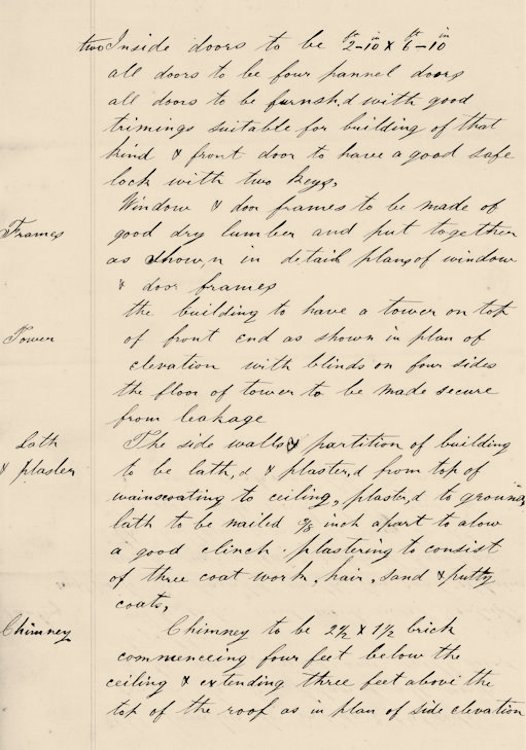 two Inside doors to be 2ft-10in x 6ft-10in
all doors to be four pannel doors
all doors to be furnsh,d with good
trimings suitable for building of that
kind & front door to have a good safe
lock with two Keys,
Window & door frames to be made of
Frames good dry lumber and put together
as shown in detail plans of window
& door frames
the building to have a tower on top
Tower of front end as shown in plan of
elevation with blinds on four sides
the floor of tower to be made secure
from leakage
Lath The side walls & partition of building
& plaster to be lath,d & plaster,d from top of
wainscoating to ceiling, plaster,d to grounds
lath to be nailed 3/8 inch apart to alow
a good clinch. plastering to consist
of three coat work, hair, sand & putty
coats,
Chimney Chimney to be 2½ x 1½ brick
commenceing four feet below the
ceiling & extending three feet above the
top of the roof as in plan of side elevation